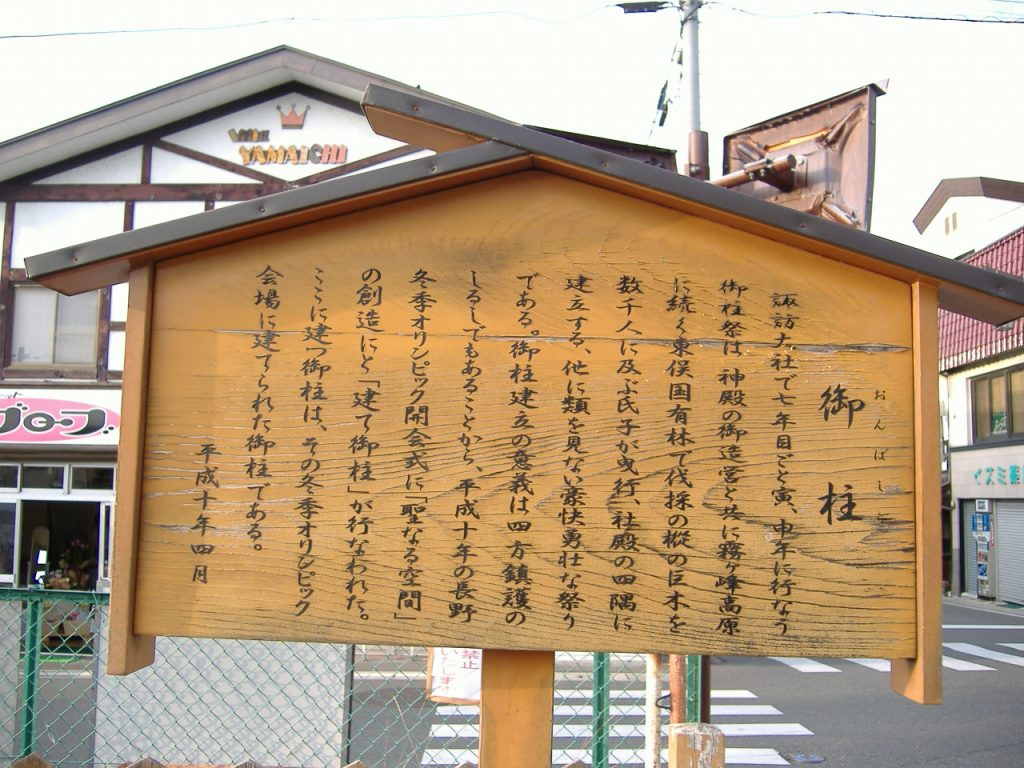 御柱
おんばしら
諏訪大社で七年目ごと寅、申年に行なう
御柱祭は、神殿の御造営と共に霧ヶ峰高原
に続く東俣国有林で伐採の樅の巨木を
数千人に及ぶ氏子が曳行、社殿の四隅に
建立する、他に類を見ない豪快勇壮な祭り
である。御柱建立の意義は四方鎮護の
しるしでもあることから、平成十年の長野
冬季オリンピック開会式に「聖なる空間」
の創造にと「建て御柱」が行なわれた。
ここに建つ御柱は、その冬季オリンピック
会場に建てられた御柱である。
平成十年四月
YAMAICHI
グローブ
イズミ薬
禁止
いたします